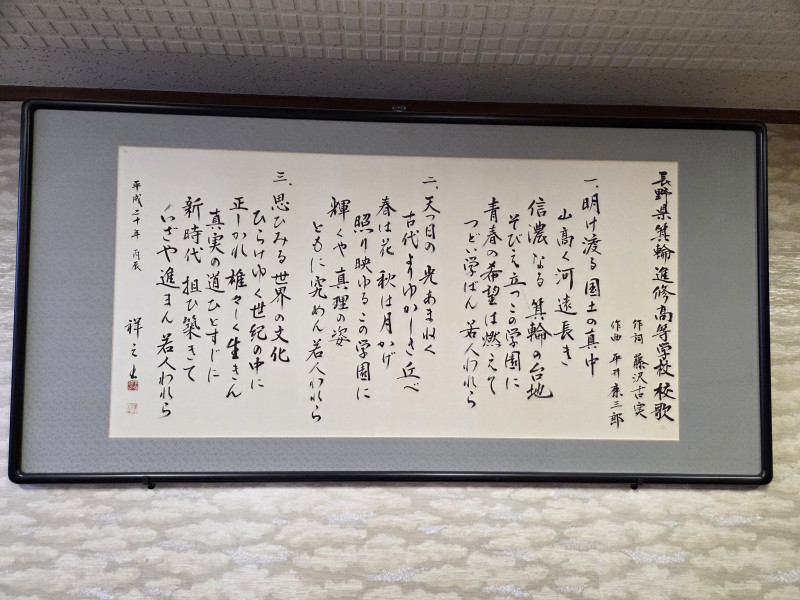 長野県箕輪進修高等学校 校歌
作詞 藤沢古実
作曲 平井康三郎
一、明け渡る 国土の真中
山高く 河遠長き
信濃なる 箕輪の台地
そびえ立つ この学園に
青春の希望は燃えて
つどい学ばん 若人われら
二、天つ日の 光あまねく
古代よりゆかしき丘べ
春は花 秋は月かげ
照り映ゆる この学園に
輝くや 真理の姿
ともに究めん 若人われら
三、思ひみる 世界の文化
ひらけゆく 世紀の中に
正しかれ 雄々しく生きん
真実の道ひとすじに
新時代 担ひ築きて
いざや進まん 若人われら
平成二十年
祥之書